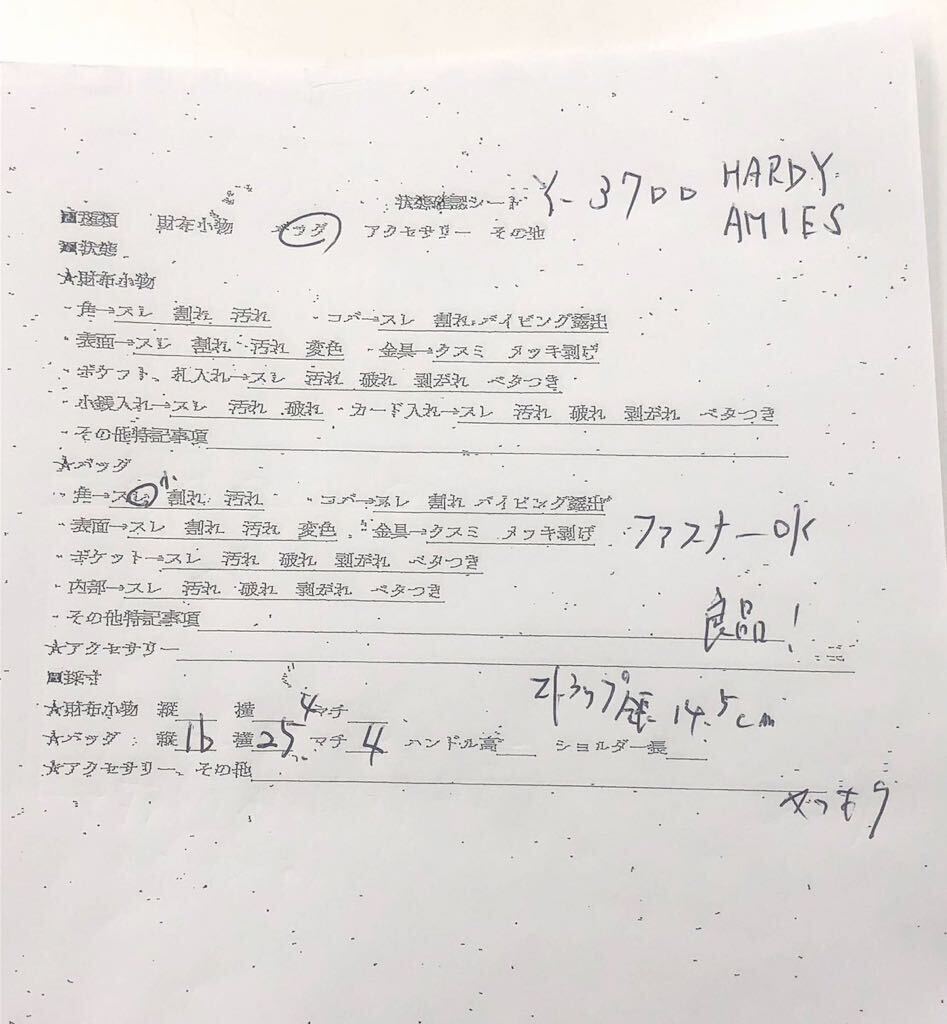 状態確認シート Y-3700 HARDY AMIES
■種類 財布小物 バッグ アクセサリー その他
■状態
★財布小物
・角→スレ 割れ 汚れ ・コバ→スレ 割れ パイピング露出
・表面→スレ 割れ 汚れ 変色 ・金具→クスミ メッキ剥げ
・ポケット、札入れ→スレ 汚れ 破れ 剥がれ ベタつき
・小銭入れ→スレ 汚れ 破れ ・カード入れ→スレ 汚れ 破れ 剥がれ ベタつき
・その他特記事項
★バッグ
・角→スレ 小 割れ 汚れ ・コバ→スレ 割れ パイピング露出
・表面→スレ 割れ 汚れ 変色 ・金具→クスミ メッキ剥げ ファスナーOK
・ポケット→スレ 汚れ 破れ 剥がれ ベタつき
・内部→スレ 汚れ 破れ 剥がれ ベタつき
・その他特記事項 良品!
★アクセサリー
■採寸 ストラップ全長 14.5cm
★財布小物 縦 横 マチ
★バッグ 縦16 横25 マチ4 ハンドル高 ショルダー長
★アクセサリー、その他